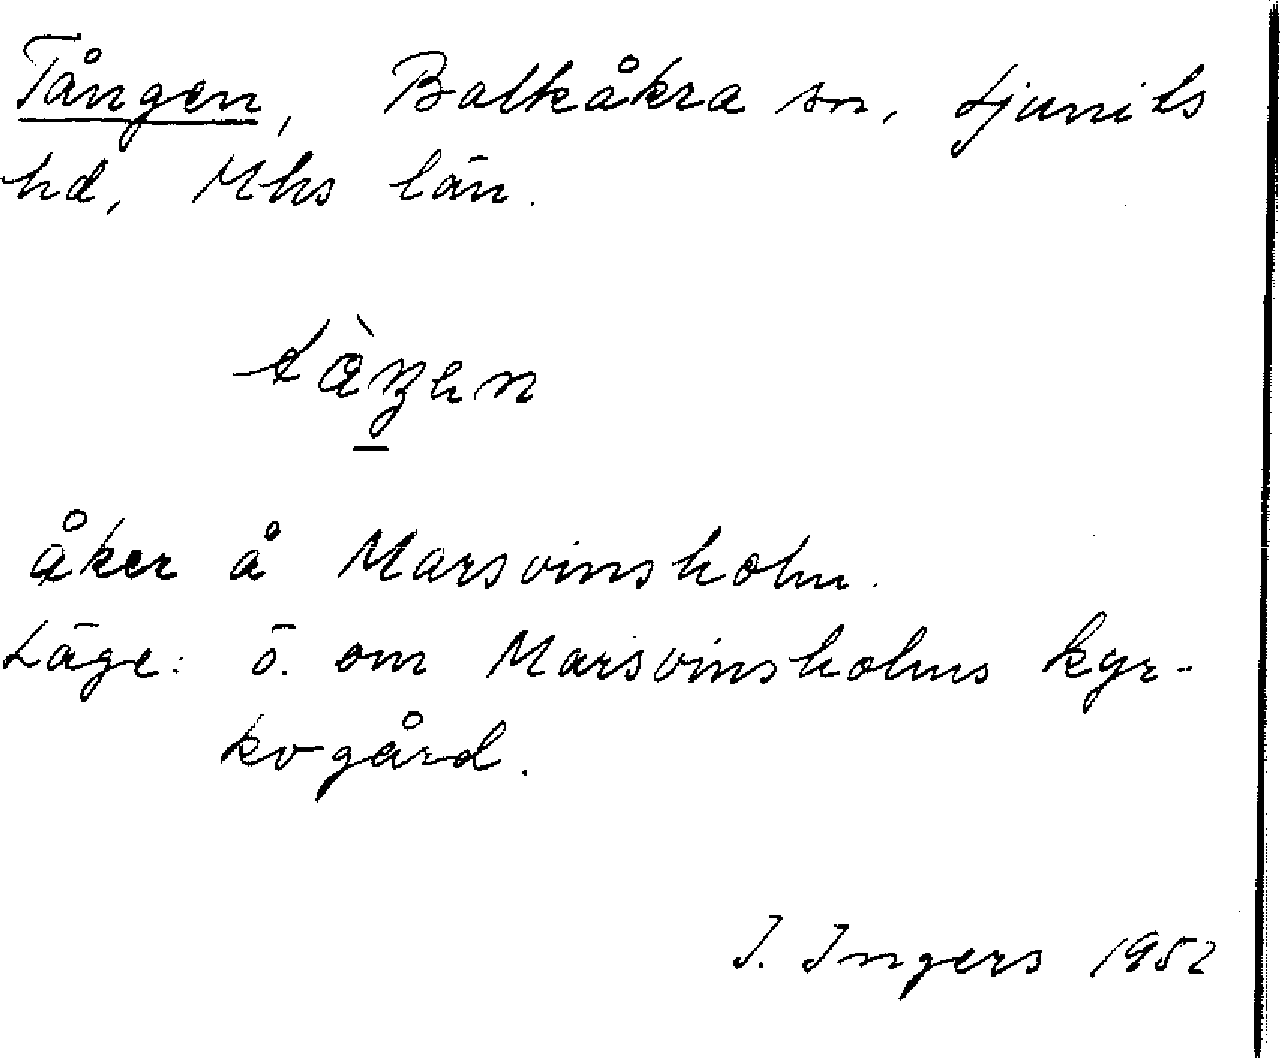 Tången, Balkåkra sn, Ljunits
hd, Mhs län.
tàŋen
åker å Marsvinsholm.
Läge: ö. om Marsvinsholms kyr-
kogård.
I. Ingers 1952